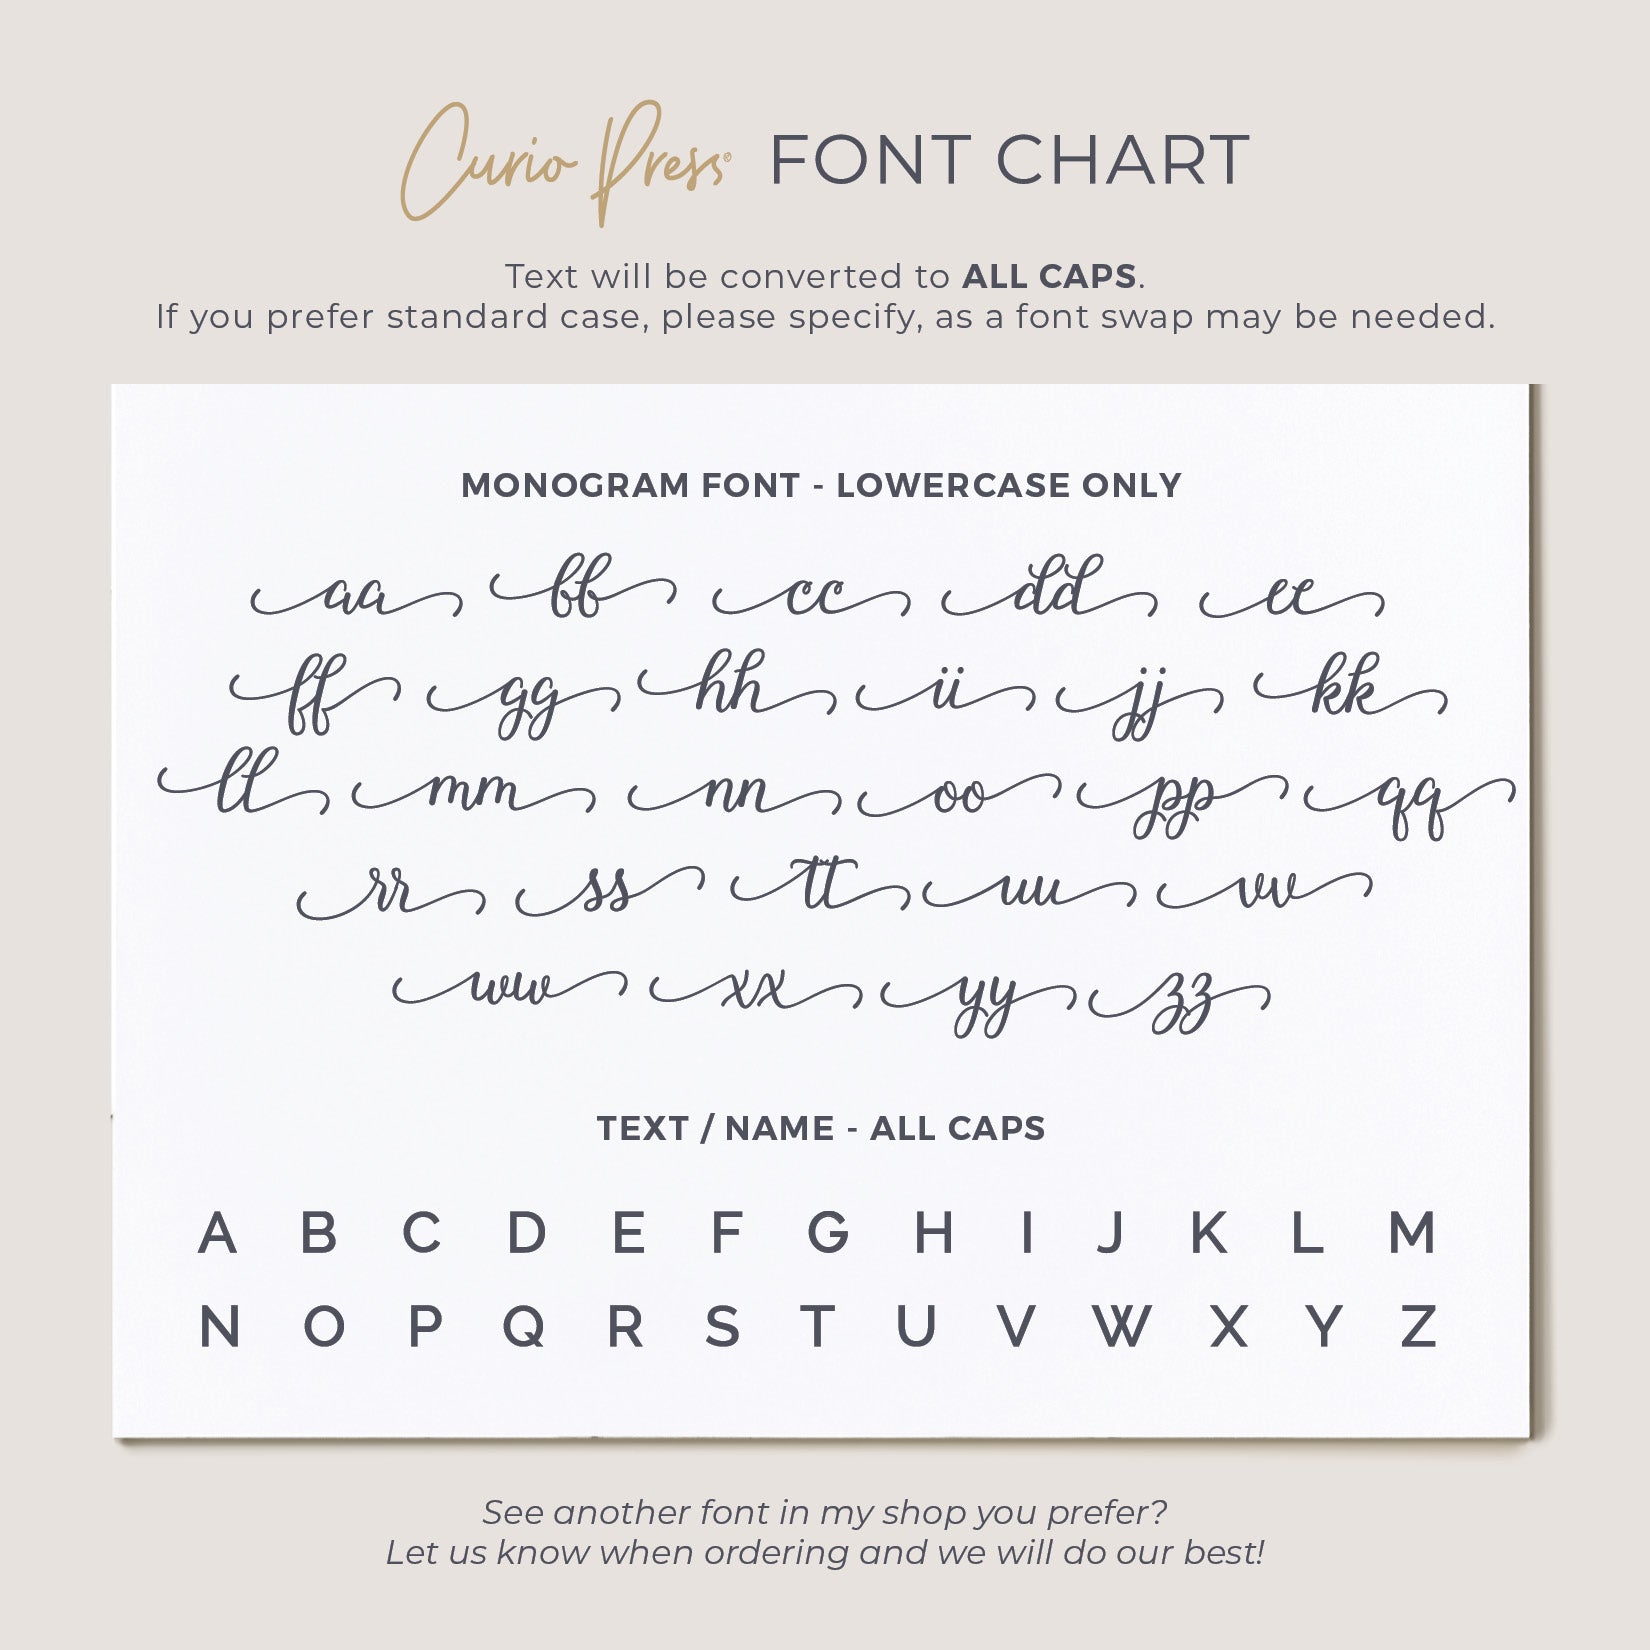 Curio Press® FONT CHART
Text will be converted to ALL CAPS.
If you prefer standard case, please specify, as a font swap may be needed.
MONOGRAM FONT - LOWERCASE ONLY
aa bb cc dd ee
ff gg hh ii jj kk
ll mm nn oo pp qq
rr ss tt uu vv
ww xx yy zz
TEXT / NAME - ALL CAPS
A B C D E F G H I J K L M
N O P Q R S T U V W X Y Z
See another font in my shop you prefer?
Let us know when ordering and we will do our best!